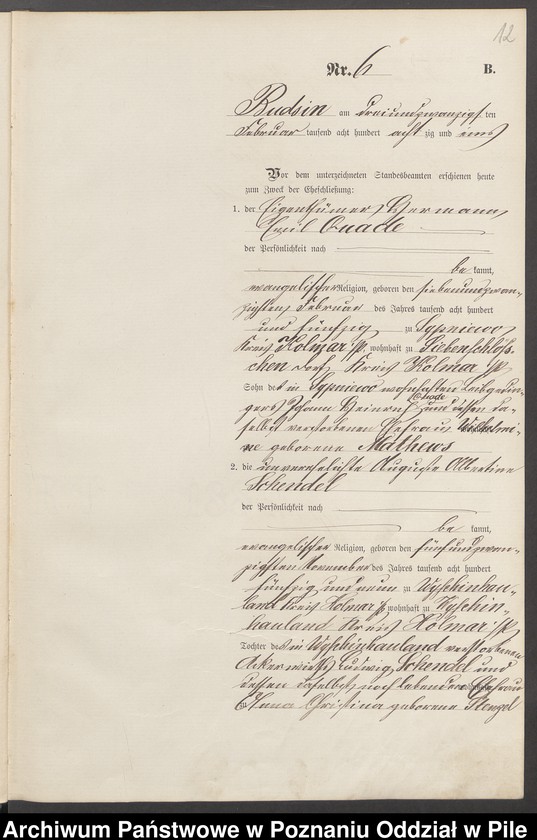 12
Nr. 6 B.
Budsin am dreiundzwanzigsten
Februar tausend acht hundert achtzig und eins
Vor dem unterzeichneten Standesbeamten erschienen heute
zum Zweck der Eheschließung:
1. der Eigenthümer Hermann
Emil Quade
der Persönlichkeit nach
be kannt,
evangelischer Religion, geboren den siebenundzwan-
zigsten Februar des Jahres tausend acht hundert
und fünfzig zu Sypniewo
Kreis Kolmar i/P, wohnhaft zu Liebenschlöß-
chen Kreis Kolmar i/P
Sohn des in Sypniewo wohnhaften Leibgedin-
gers Johann Heinrich Quade und dessen da-
selbst verstorbenen Ehefrau Wilhelmi-
ne geborene Mathews
2. die unverehelichte Auguste Albertine
Schendel
der Persönlichkeit nach
be kannt,
evangelischer Religion, geboren den fünfundzwan-
zigsten November des Jahres tausend acht hundert
fünfzig und neun zu Wyschinhau-
land Kreis Kolmar i/P wohnhaft zu Wyschin-
hauland Kreis Kolmar i/P
Tochter des in Wyschinhauland verstorbenen
Ackerwirths Ludwig Schendel und
dessen daselbst noch lebenden Ehefrau
zu Anna Christina geborene Stenzel
Archiwum Państwowe w Poznaniu Oddział w Pile